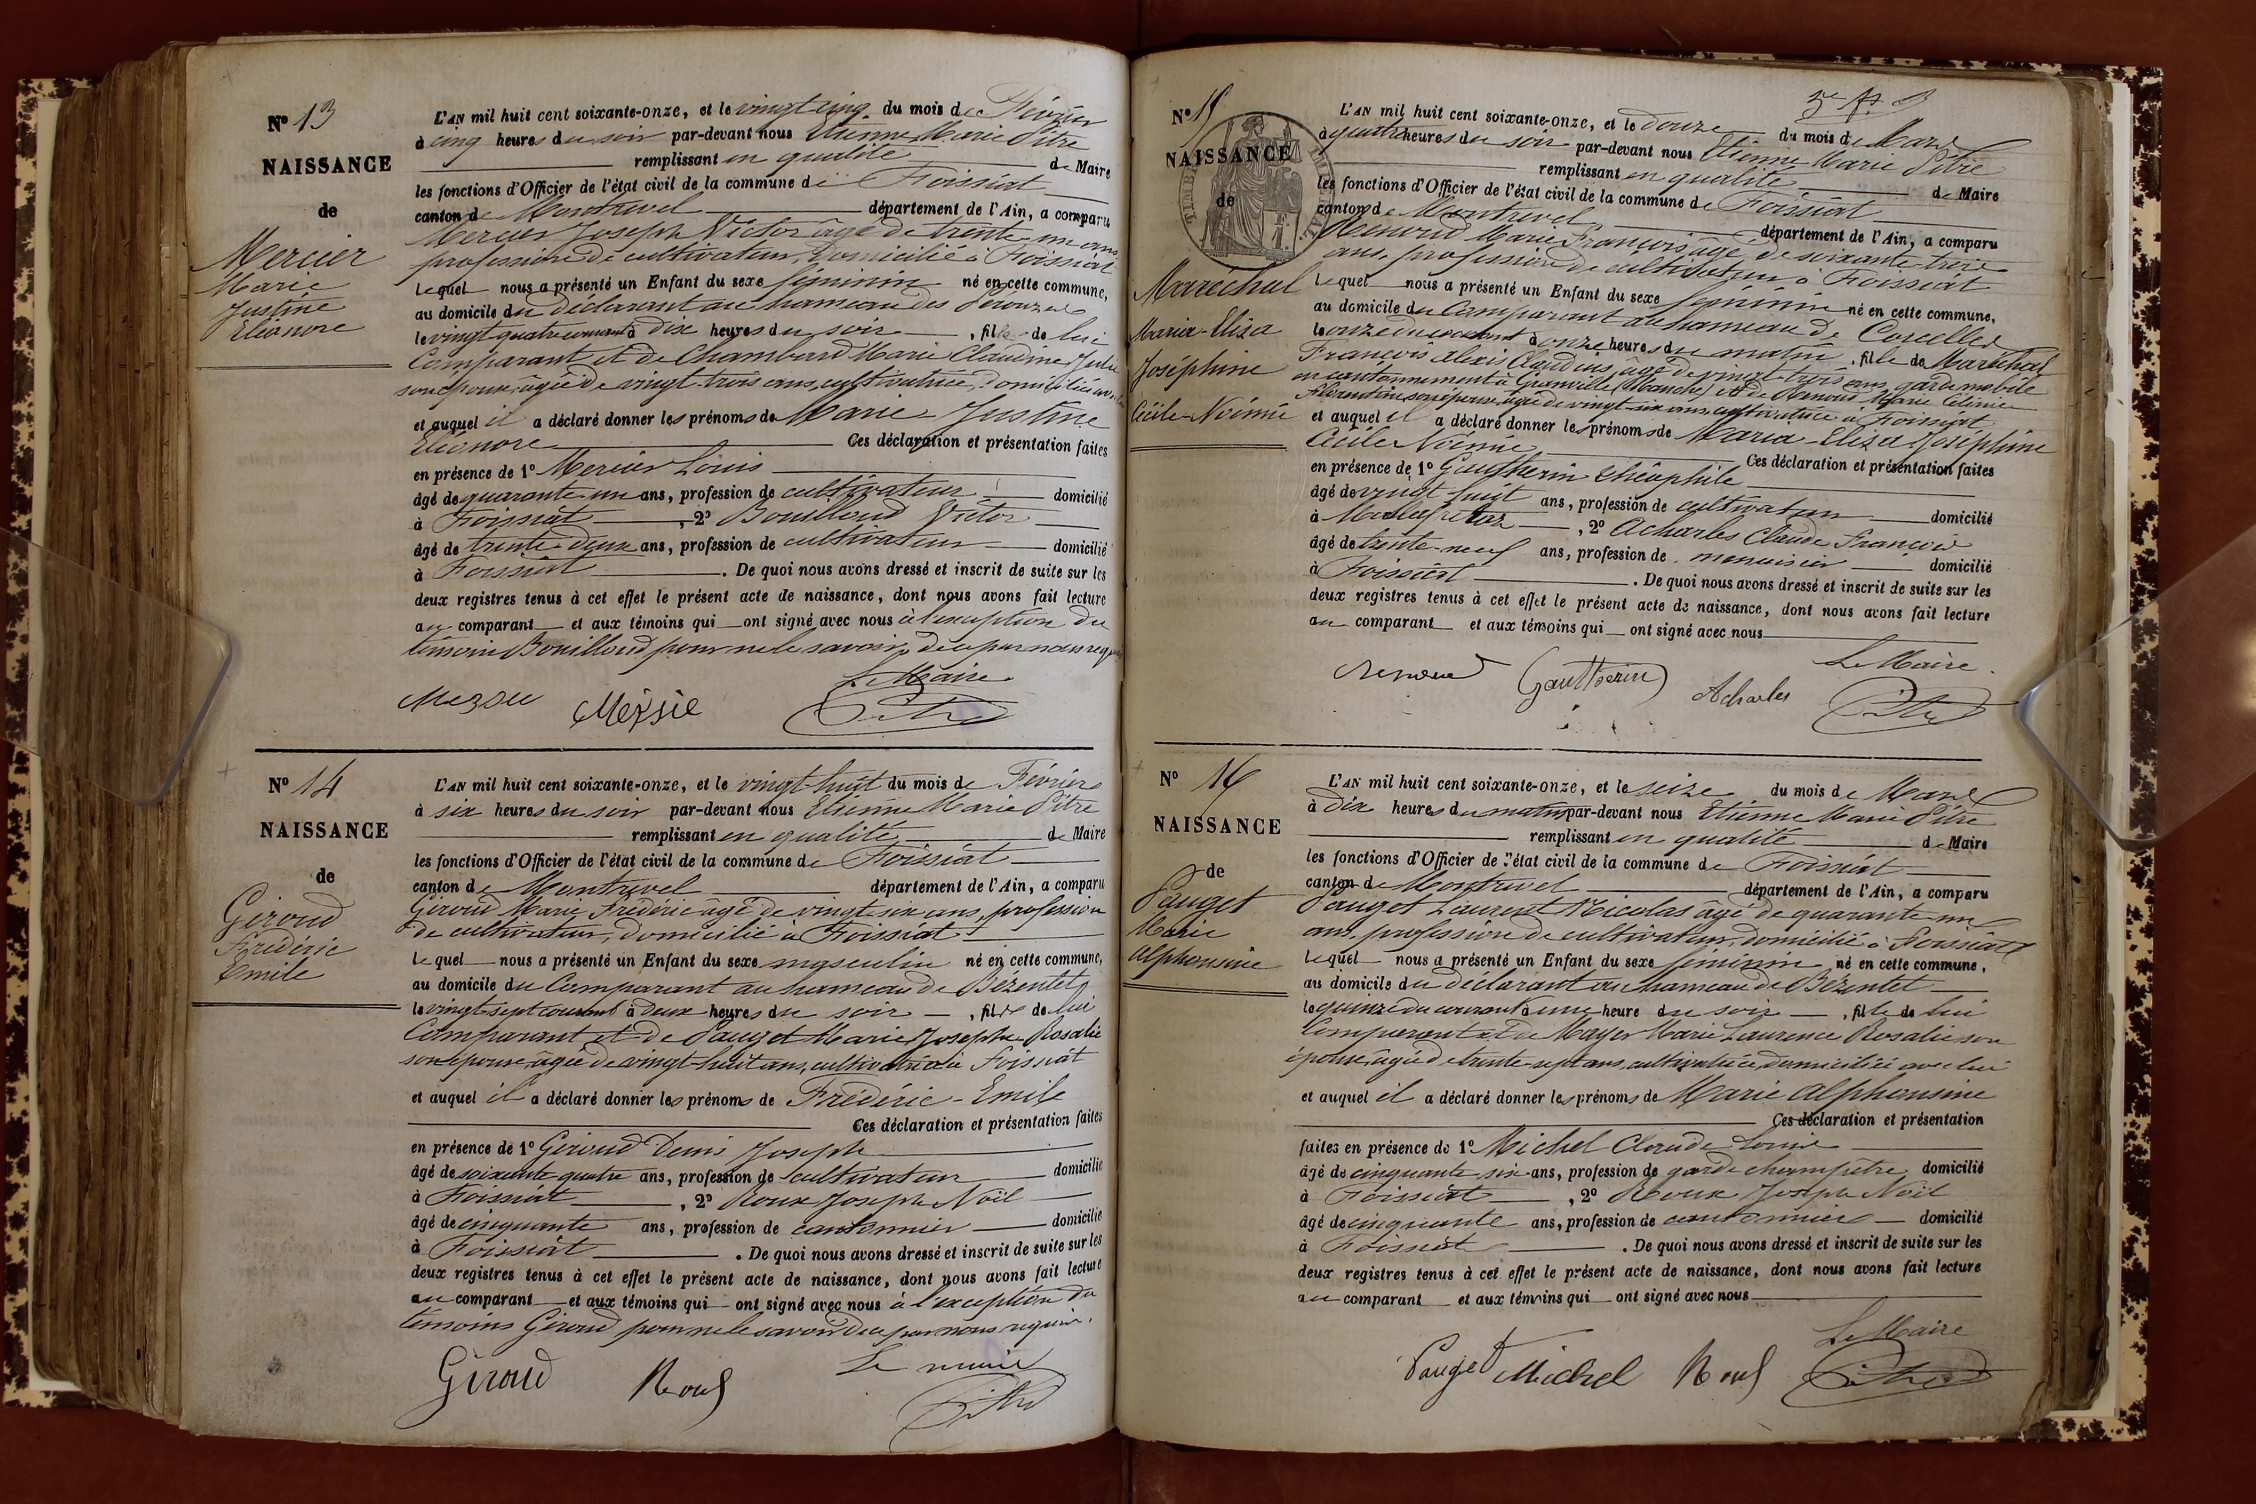 N° 13
NAISSANCE
de
Mercier
Marie
Justine
Eléonore
L'AN mil huit cent soixante-onze, et le vingt cinq du mois de Février
à cinq heures du soir par-devant nous Etienne Marie Pitre
remplissant en qualité de Maire
les fonctions d'Officier de l'état civil de la commune de Foissiat
canton de Montrevel département de l'Ain, a comparu
Mercier Joseph Victor âgé de trente un ans
profession de cultivateur, domicilié à Foissiat
lequel nous a présenté un Enfant du sexe féminin né en cette commune,
au domicile du déclarant au hameau des
le vingt quatre courant à dix heures du soir, fille de lui
Comparant et de Chambard Marie Claudine Julie
son épouse, âgée de vingt trois ans, cultivatrice, domiciliée avec lui
et auquel il a déclaré donner les prénoms de Marie Justine
Eléonore Ces déclaration et présentation faites
en présence de 1° Mercier Louis
âgé de quarante un ans, profession de cultivateur domicilié
à Foissiat, 2° Bouilloud Victor
âgé de trente deux ans, profession de cultivateur domicilié
à Foissiat. De quoi nous avons dressé et inscrit de suite sur les
deux registres tenus à cet effet le présent acte de naissance, dont nous avons fait lecture
au comparant et aux témoins qui ont signé avec nous à l'exception du
témoin Bouilloud pour ne le savoir, de ce par nous requis
Le Maire
Pitre
N° 14
NAISSANCE
de
Giroud
Frédéric
Emile
L'AN mil huit cent soixante-onze, et le vingt huit du mois de Février
à six heures du soir par-devant nous Etienne Marie Pitre
remplissant en qualité de Maire
les fonctions d'Officier de l'état civil de la commune de Foissiat
canton de Montrevel département de l'Ain, a comparu
Giroud Marie Frédéric âgé de vingt six ans, profession
de cultivateur, domicilié à Foissiat
lequel nous a présenté un Enfant du sexe masculin né en cette commune,
au domicile du Comparant au hameau de Bézentet
le vingt sept courant à deux heures du soir, fils de lui
Comparant et de Pauget Marie Joseph Rosalie
son épouse, âgée de vingt huit ans, cultivatrice à Foissiat
et auquel il a déclaré donner les prénoms de Frédéric - Emile
Ces déclaration et présentation faites
en présence de 1° Giroud Denis Joseph
âgé de soixante quatre ans, profession de cultivateur domicilié
à Foissiat, 2° Roux Joseph Noël
âgé de cinquante ans, profession de cantonnier domicilié
à Foissiat. De quoi nous avons dressé et inscrit de suite sur les
deux registres tenus à cet effet le présent acte de naissance, dont nous avons fait lecture
au comparant et aux témoins qui ont signé avec nous à l'exception du
témoins Giroud pour ne le savoir de ce par nous requis.
Le maire
Giroud Roux Pitre
N° 15
NAISSANCE
de
Maréchal
Maria-Eliza
Joséphine
Cécile-Noémie
L'AN mil huit cent soixante-onze, et le douze du mois de Mars
à quatre heures du soir par-devant nous Etienne Marie Pitre
remplissant en qualité de Maire
les fonctions d'Officier de l'état civil de la commune de Foissiat
canton de Montrevel département de l'Ain, a comparu
Renoud Marie François âgé de soixante trois
ans, profession de cultivateur à Foissiat
lequel nous a présenté un Enfant du sexe féminin né en cette commune,
au domicile du Comparant au hameau de Corcelles
le onze du courant à onze heures du matin, fille de Maréchal
François Alexis Claudius, âgé de vingt trois ans, garde mobile
en cantonnement à Granville (Manche) et de Renoud Marie Célinie
son épouse âgée de vingt six ans cultivatrice à Foissiat
et auquel il a déclaré donner les prénoms de Maria-Eliza Joséphine
Cécile Noémie Ces déclaration et présentation faites
en présence de 1° Gautherin Théophile
âgé de vingt huit ans, profession de cultivateur domicilié
à, 2° Acharles Claude François
âgé de trente-neuf ans, profession de menuisier domicilié
à Foissiat. De quoi nous avons dressé et inscrit de suite sur les
deux registres tenus à cet effet le présent acte de naissance, dont nous avons fait lecture
au comparant et aux témoins qui ont signé avec nous
Le Maire
Renoud Gautherin Acharles Pitre
N° 16
NAISSANCE
de
Pauget
Marie
Alphonsine
L'AN mil huit cent soixante-onze, et le seize du mois de Mars
à dix heures du matin par-devant nous Etienne Marie Pitre
remplissant en qualité de Maire
les fonctions d'Officier de l'état civil de la commune de Foissiat
canton de Montrevel département de l'Ain, a comparu
Pauget Laurent Nicolas âgé de quarante un
ans, profession de cultivateur, domicilié à Foissiat
lequel nous a présenté un Enfant du sexe féminin né en cette commune,
au domicile du déclarant au hameau de Bézentet
le quinze du courant à une heure du soir, fille de lui
Comparant et de Mayer Marie Laurence Rosalie son
épouse, âgée de trente sept ans, cultivatrice, domiciliée avec lui
et auquel il a déclaré donner les prénoms de Marie Alphonsine
Ces déclaration et présentation
faites en présence de 1° Michel Claude Louis
âgé de cinquante six ans, profession de garde champêtre domicilié
à Foissiat, 2° Roux Joseph Noël
âgé de cinquante ans, profession de cantonnier domicilié
à Foissiat. De quoi nous avons dressé et inscrit de suite sur les
deux registres tenus à cet effet le présent acte de naissance, dont nous avons fait lecture
au comparant et aux témoins qui ont signé avec nous
Le Maire
Pauget Michel Roux Pitre